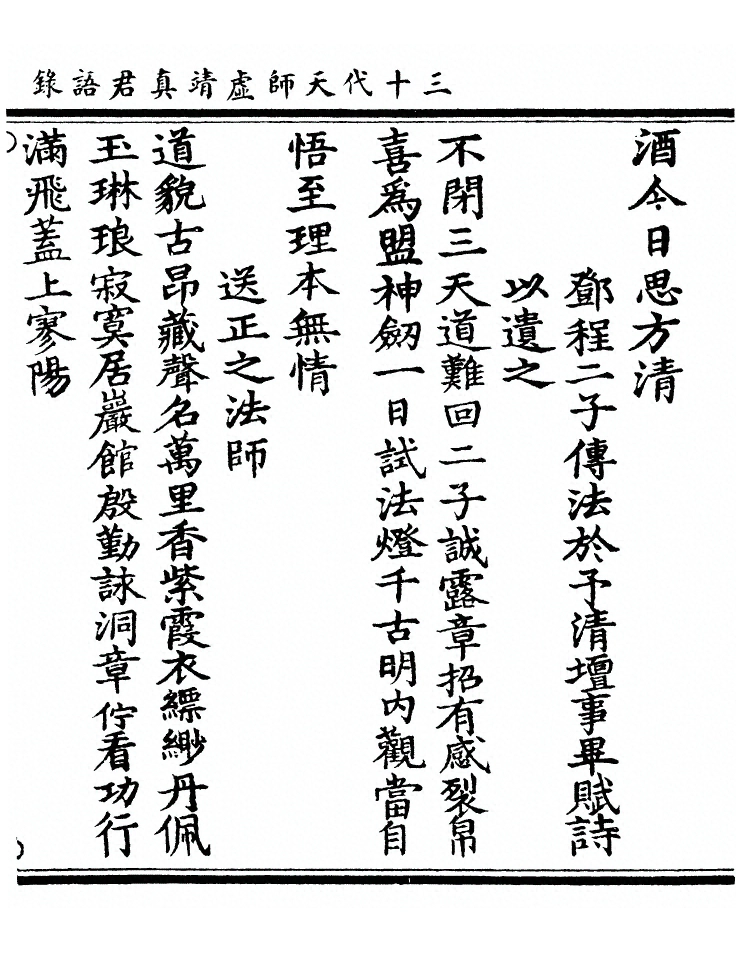 三十代天師虛靖真君語錄
酒今日思方清
鄧程二子傳法於予清壇事畢賦詩
以遺之
不閉三天道難回二子誠露章招有感裂帛
喜爲盟神劒一日試法燈千古明內觀當自
悟至理本無情
送正之法師
道貌古昂藏聲名萬里香紫霞衣縹緲丹佩
玉琳琅寂寞居巖館殷勤詠洞章佇看功行
滿飛蓋上寥陽